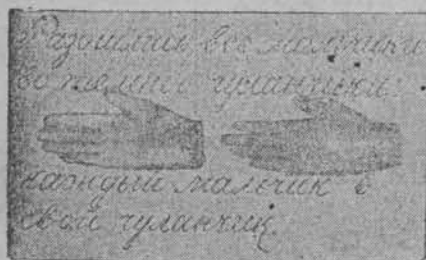 Разошлись все мальчики
во темные чуланчики:
каждый мальчик в
свой чуланчик.